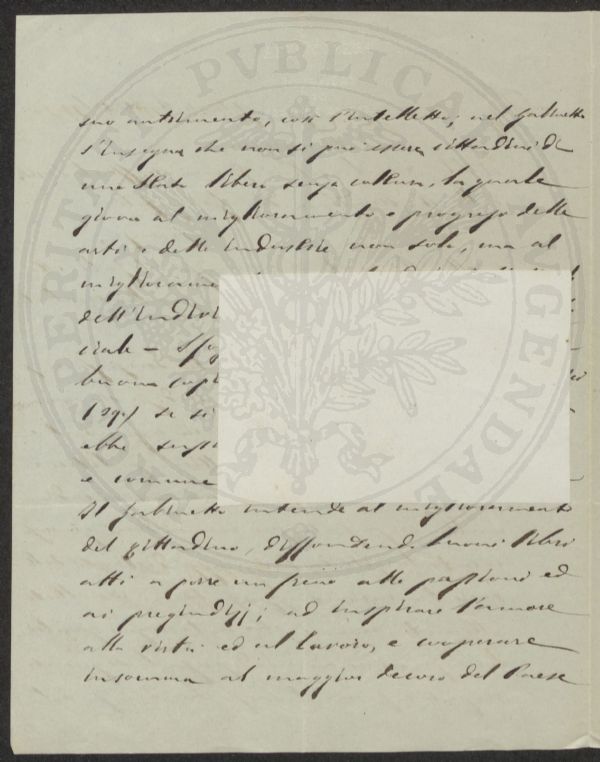 suo nutrimento, così l'intelletto; nel Gabinetto
s'insegna che non si può essere cittadini di
uno Stato libero senza coltura, la quale
giova al miglioramento e progresso delle
arti e delle industrie non solo, ma al
dell'
ciale —
buona
se si
ebbe
e comune
Il Gabinetto intende al miglioramento
del cittadino, diffondendo buoni libri
atti a porre un freno alle passioni ed
ai pregiudizj; ad inspirare l'amore
alla virtù ed al lavoro, e cooperare
insomma al maggior decoro del Paese